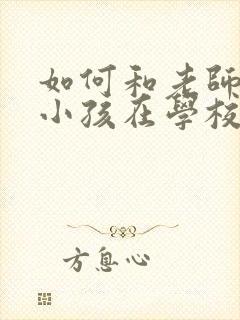 如何和老師
小孩在學校
方息心